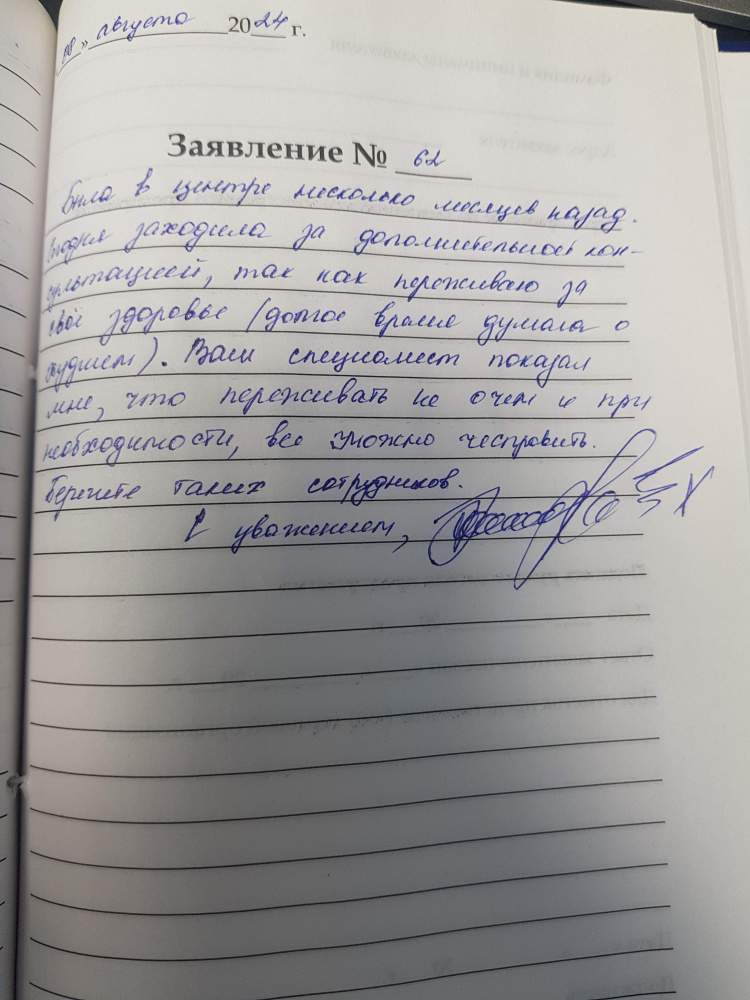 08 » августа 2024 г.
Заявление № 62
Была в центре несколько месяцев назад.
Сегодня заходила за дополнительной кон-
сультацией, так как переживаю за
своё здоровье (долгое время думала о
худшем). Ваш специалист показал
мне, что переживать не о чем и при
необходимости, все можно исправить.
Берегите таких сотрудников.
С уважением,